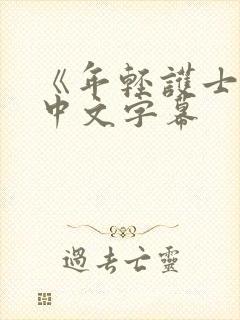 《年轻護士
中文字幕
過去亡靈